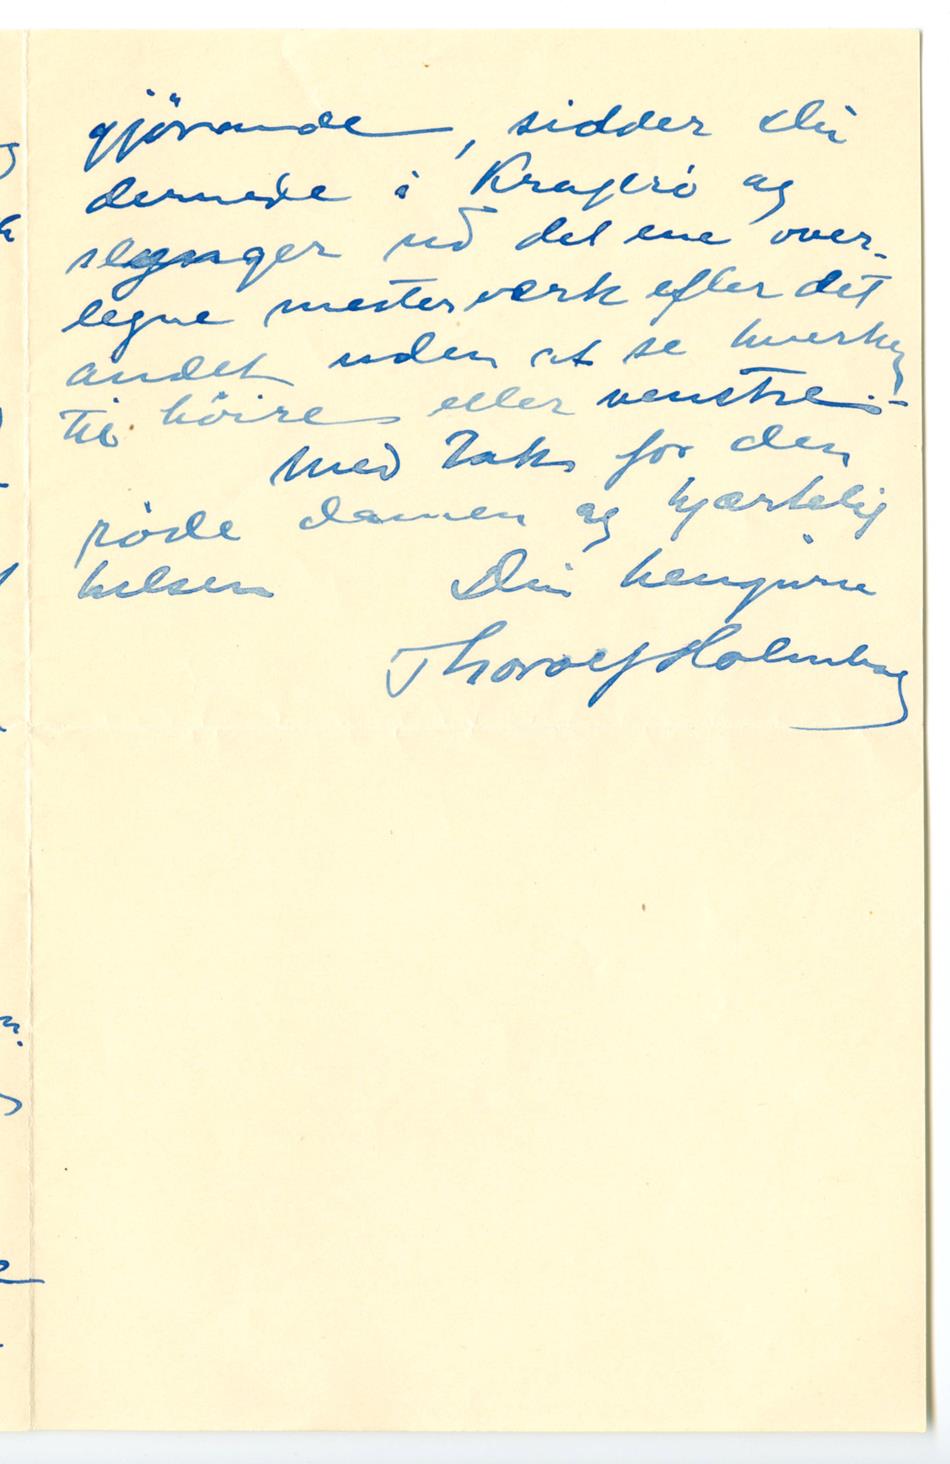 gjörende, sidder Du
dernede i Kragerö og
slynger ud det ene over-
legne mesterværk efter det
andet uden at se hverken
til höire eller venstre.-
Med Tak for den
röde damen og hjærtelig
hilsen Din hengivne
Thorolf Holmboe